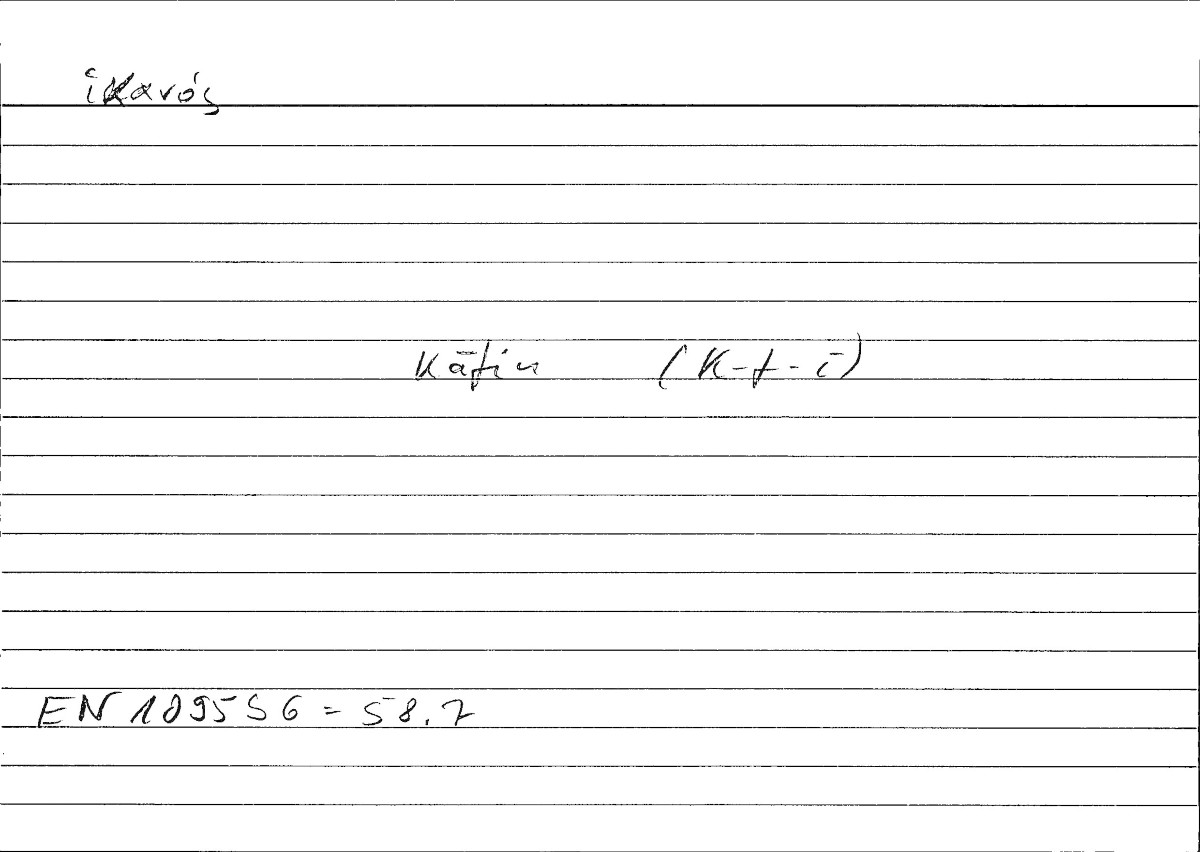 ἱκανός
kāfin (k-f-ī)
EN 1095 S 6 = 58.7